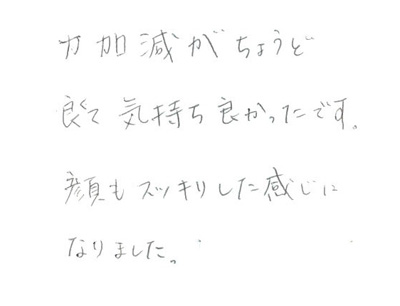 力加減がちょうど
良くて気持ち良かったです。
顔もスッキリした感じに
なりました。